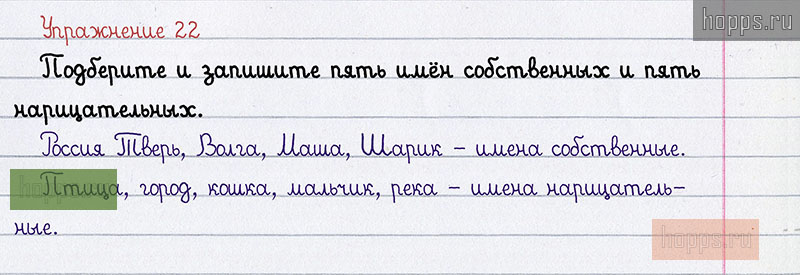 hopps.ru
Упражнение 22
Подберите и запишите пять имён собственных и пять
нарицательных.
Россия Тверь, Волга, Маша, Шарик – имена собственные.
hopps.ru
Птица, город, кошка, мальчик, река – имена нарицатель–
ные.
hopps.ru